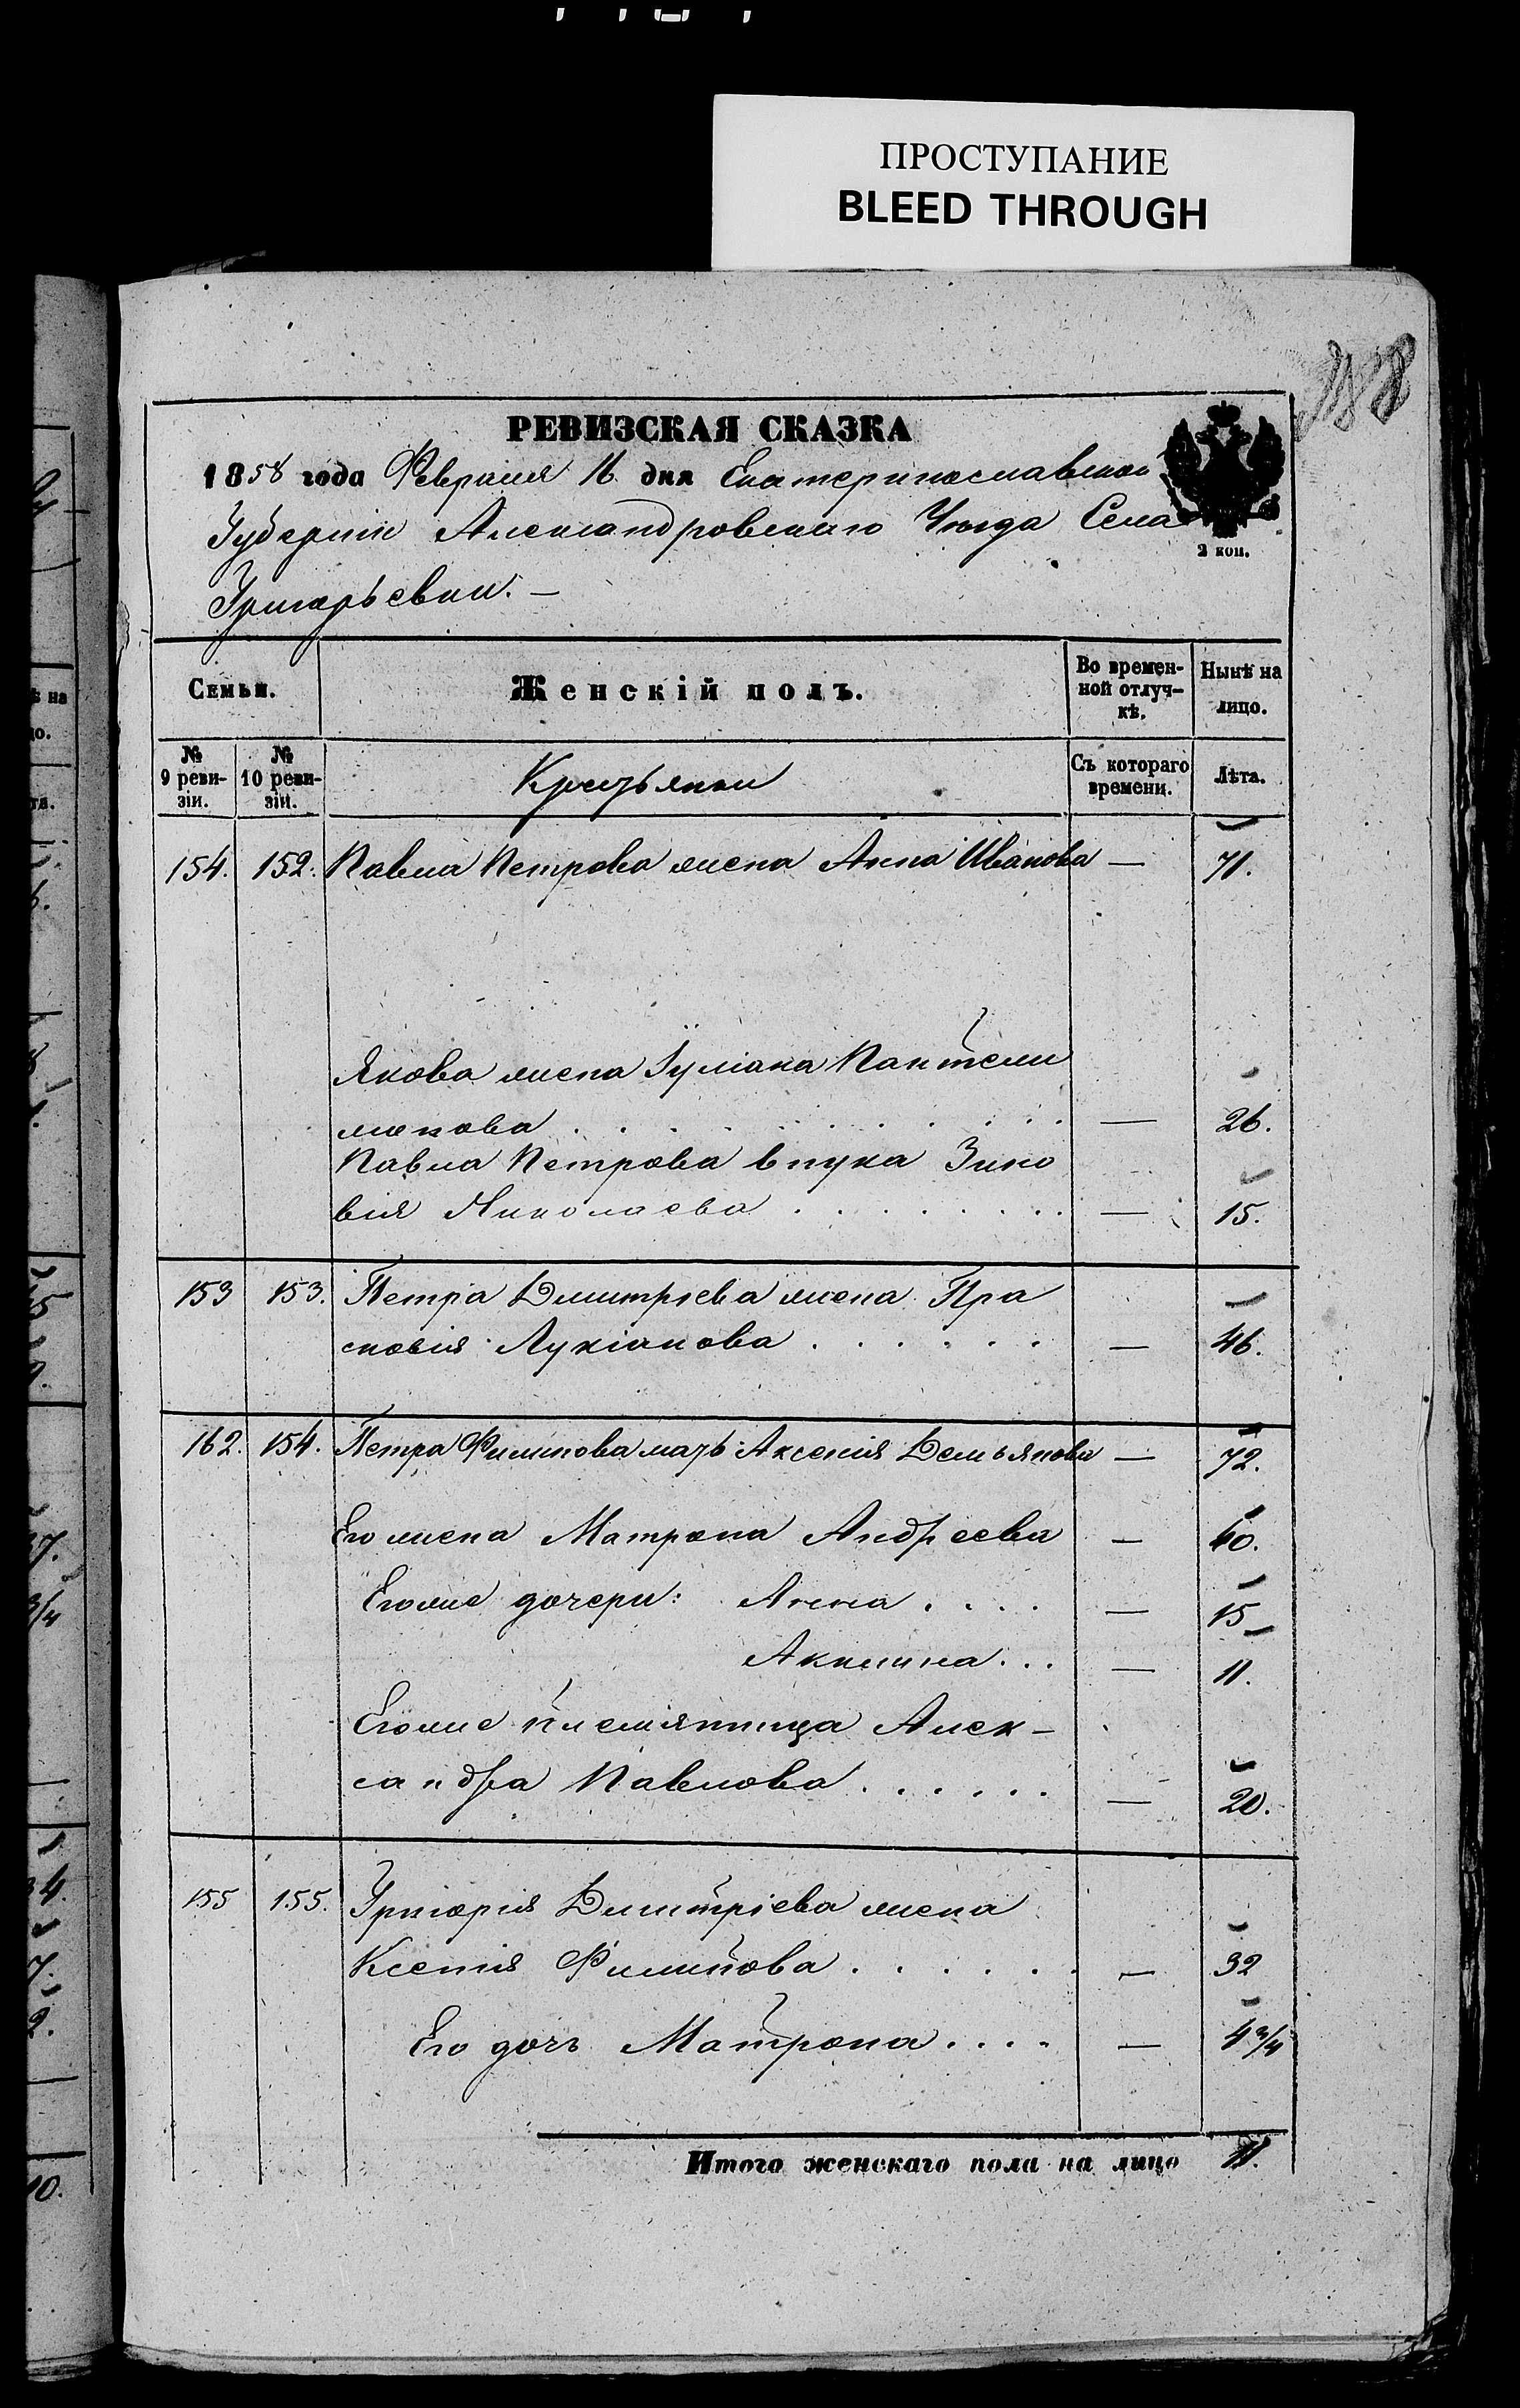 ПРОСТУПАНИЕ
BLEED THROUGH
РЕВИЗСКАЯ СКАЗКА
1858 года Февраля 16 дня Екатеринославской
Губернии Александровскаго Уѣзда Села
2 коп.
Григорьевки. —
Семьи. Женскій полъ. Во времен- Нынѣ на
ной отлуч- лицо.
кѣ.
№ № Крестьянки Съ котораго Лѣта.
9 реви- 10 реви- времени.
зіи. зіи.
154. 152. Павла Петрова жена Анна Иванова — 71.
Якова жена Іуліана Пантели
монова . . . . . . . . . . — 26.
Павла Петрова внука Зино
вія Николаева . . . . . . . . — 15.
153 153. Петра Дмитріева жена Пра
сковія Лукіанова . . . . . . — 46.
162. 154. Петра Филипова мать Аксенія Демьянова — 72.
Его жена Матрона Андреева — 40.
Егоже дочери: Анна . . . . — 15
Акилина . . . — 11.
Егоже племянница Алек-
сандра Павлова . . . . . . — 20.
155 155. Григорія Дмитріева жена
Ксенія Филипова . . . . . . — 32
Его дочь Матрона . . . . — 4 3/4
Итого женскаго пола на лицо 11.